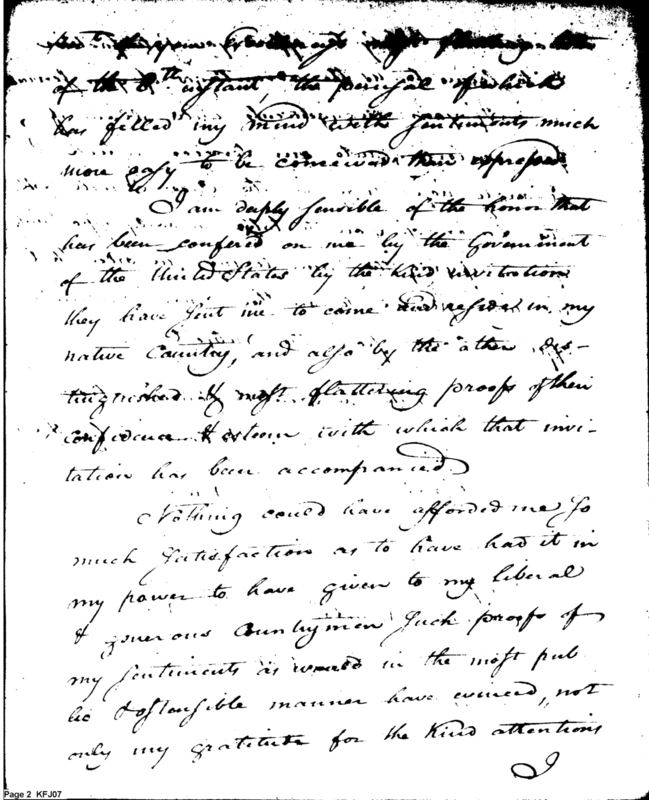 of the 8th instant, the perusal of which
has filled my mind with sentiments much
more easy to be conceived than expressed.
I am deeply sensible of the honor that
has been confered on me by the Government
of the United States by the kind invitation
they have sent me to come and reside in my
native Country, and also by the other dis-
tinguished & most flattering proofs of their
confidence & esteem with which that invi-
tation has been accompanied.
Nothing could have afforded me so
much satisfaction as to have had it in
my power to have given to my liberal
& generous Countrymen such proofs of
my sentiments as would in the most pub
lic & ostensible manner have evinced, not
only my gratitude for the kind attentions
I
Page 2 KFJ07